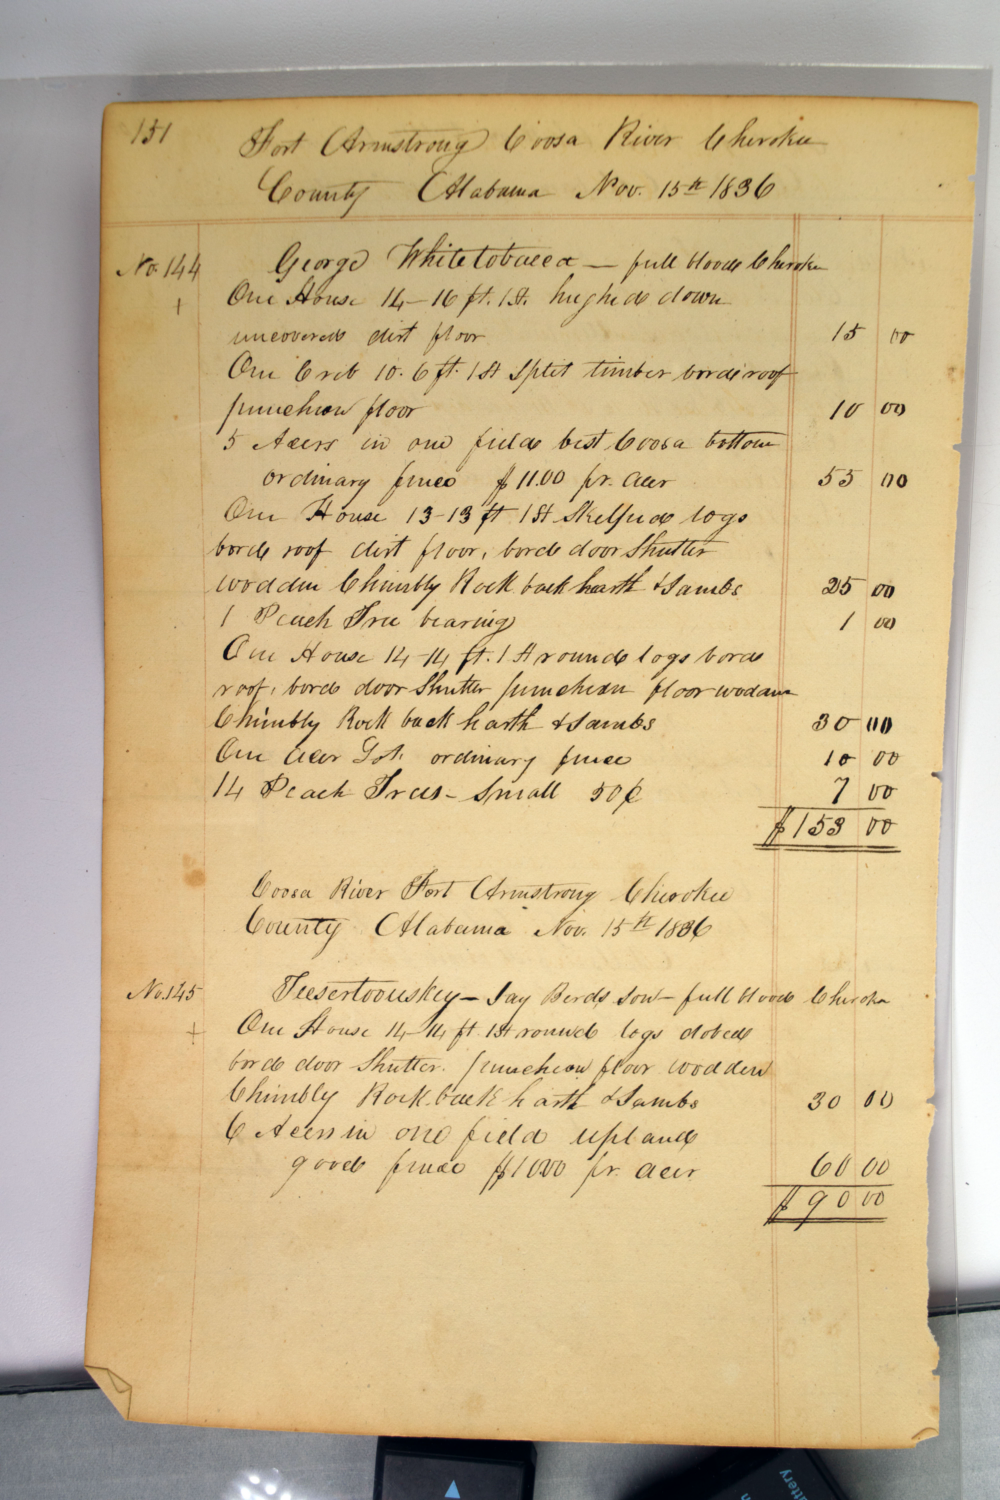 151
Fort Armstrong Coosa River Cherokee
County Alabama Nov. 15th 1836
No. 144 George Whitetobacco — full blood Cherokee
One House 14-16 ft. 1 St. hughed down
uncovered dirt floor 15 00
One Crib 10.6 ft. 1 St Split timber bord roof
puncheon floor 10 00
5 Acers in one field best Coosa bottom
ordinary fence $11.00 pr. acer 55 00
One House 13-13 ft 1 St Skelped logs
bord roof dirt floor, bord door Shutter
wodden Chimbly Rock back harth & Jambs 25 00
1 Peach Tree bearing 1 00
One House 14-14 ft. 1 St round logs bord
roof, bord door Shutter puncheon floor wodden
Chimbly Rock back harth & Jambs 30 00
One acer Lot ordinary fence 10 00
14 Peach Trees - Small 50¢ 7 00
$153 00
Coosa River Fort Armstrong Cherokee
County Alabama Nov. 15th 1836
No. 145 Teesertoouskey - Jay Birds Son - full blood Cherokee
One House 14-14 ft 1 St round logs dobed
bord door Shutter. puncheon floor wodden
Chimbly Rock back harth & Jambs 30 00
6 Acers in one field upland
good fence $10.00 pr. acer 60 00
$90 00
ttery